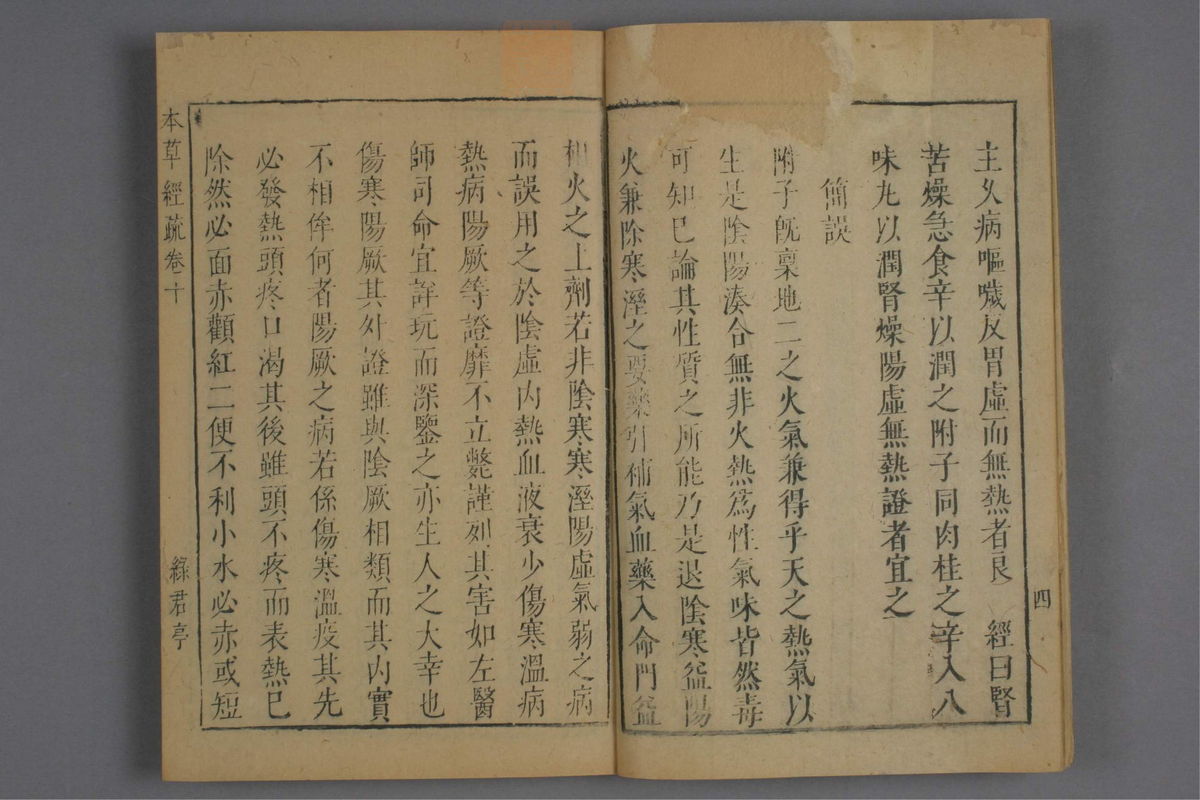 四
主久病嘔噦反胃虛而無熱者良 經曰腎
苦燥急食辛以潤之附子同肉桂之辛入八
味丸以潤腎燥陽虛無熱證者宜之
簡誤
附子既稟地二之火氣兼得乎天之熱氣以
生是陰陽湊合無非火熱爲性氣味皆然毒
可知已論其性質之所能乃是退陰寒益陽
火兼除寒溼之要藥引補氣血藥入命門益
相火之上劑若非陰寒寒溼陽虛氣弱之病
而誤用之於陰虛內熱血液衰少傷寒溫病
熱病陽厥等證靡不立斃謹列其害如左醫
師司命宜詳玩而深鑒之亦生人之大幸也
傷寒陽厥其外證雖與陰厥相類而其內實
不相侔何者陽厥之病若係傷寒溫疫其先
必發熱頭疼口渴其後雖頭不疼而表熱已
除然必面赤顴紅二便不利小水必赤或短
本草經疏卷十 綠君亭